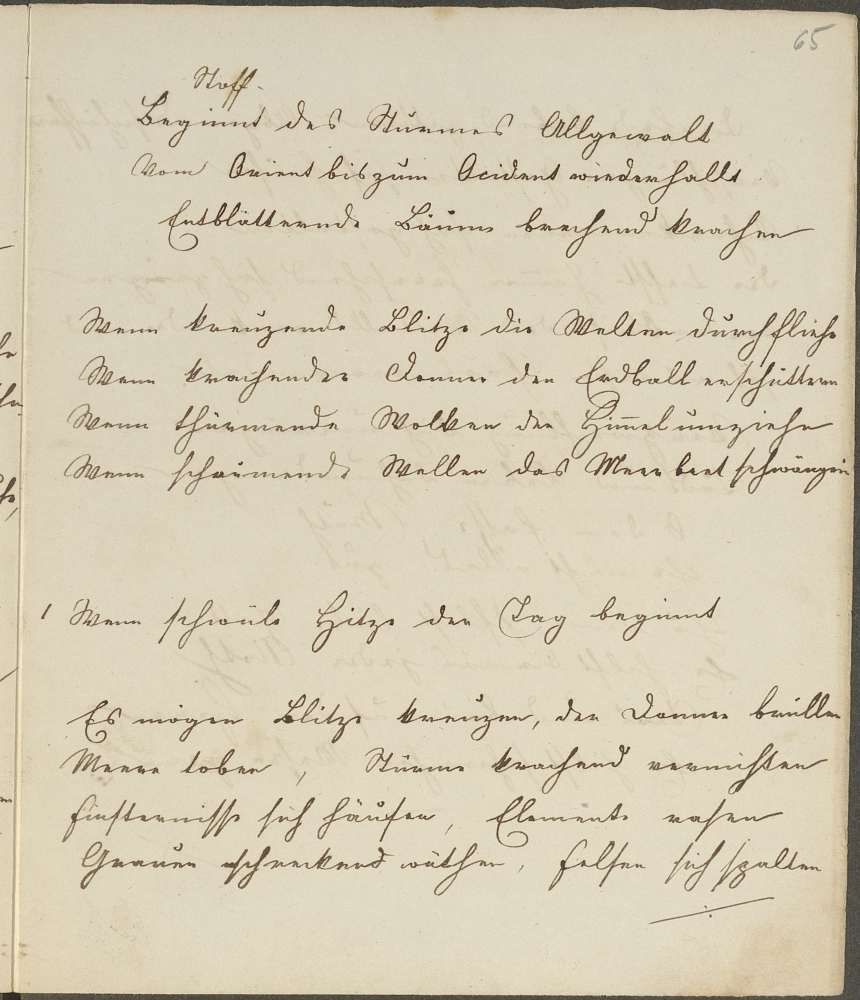 65
Stoff.
Beginnt des Sturmes Allgewalt
Vom Orient bis zum Ocident wiederhallt
Entblätternde Bäume brechend krachen
Wenn kreuzende Blitze die Welten durchfliehe
Wenn krachender Donner den Erdball erschüttern
Wenn thürmende Wolken den Himmel umziehe
Wenn schäumende Wellen das Meer
1 Wenn schwüle Hitze den Tag beginnt
Es mögen Blitze kreuzen, der Donner brüllen
Meere toben, Stürme krachend vernichten
Finsternisse sich häufen, Elemente rasen
Grauen schreckend wüthen, Felsen sich spalten